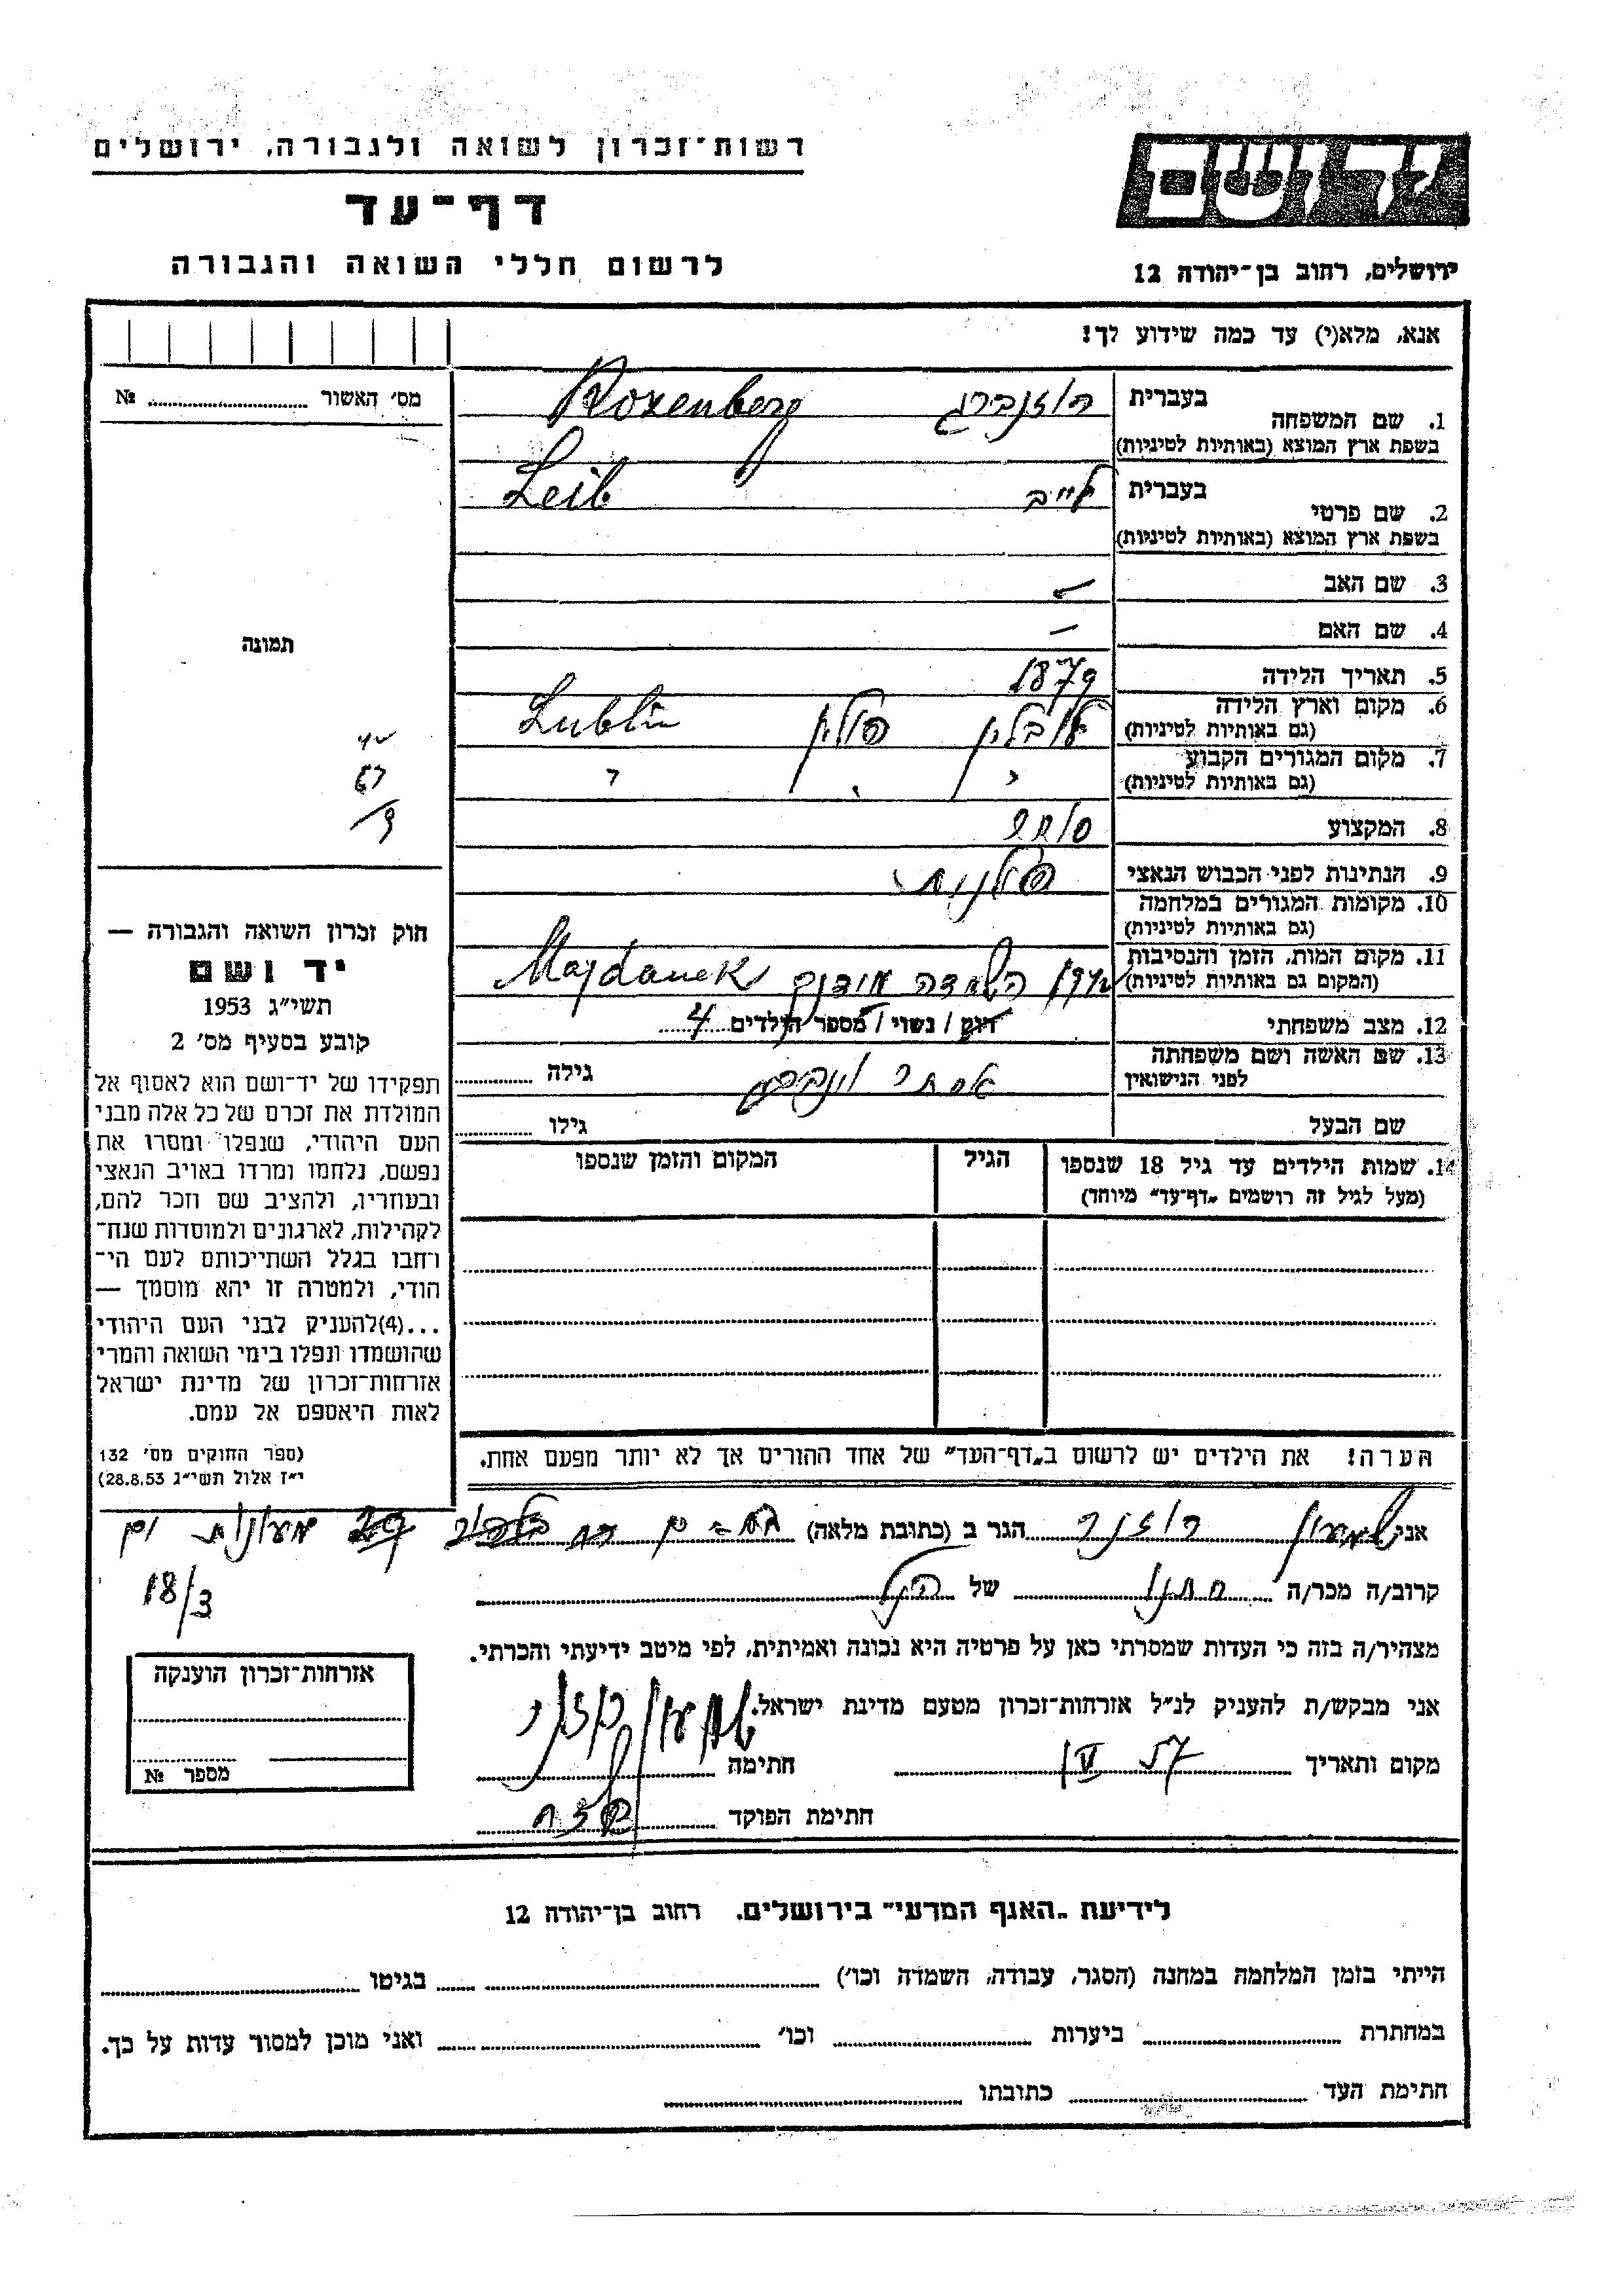 רשות־זכרון לשואה ולגבורה, ירושלים
דף־עד
לרשום חללי השואה והגבורה
ידושם
ירושלים, רחוב בן־יהודה 12
אנא, מלא(י) עד כמה שידוע לך!
1. שם המשפחה בעברית רוזנברג Rozenberg
בשפת ארץ המוצא (באותיות לטיניות)
2. שם פרטי בעברית לייב Leib
בשפת ארץ המוצא (באותיות לטיניות)
3. שם האב –
4. שם האם –
5. תאריך הלידה 1879
6. מקום וארץ הלידה לובלין פולין Lublin
(גם באותיות לטיניות)
7. מקום המגורים הקבוע " " "
(גם באותיות לטיניות)
8. המקצוע סוחר
9. הנתינות לפני הכבוש הנאצי פולנית
10. מקומות המגורים במלחמה
(גם באותיות לטיניות)
11. מקום המות, הזמן והנסיבות
(המקום גם באותיות לטיניות) מחנה השמדה מידנק Majdanek
12. מצב משפחתי רווק / נשוי / מספר הילדים 4
13. שם האשה ושם משפחתה אסתר גילה
לפני הנישואין
שם הבעל גילו
14. שמות הילדים עד גיל 18 שנספו הגיל המקום והזמן שנספו
(מעל לגיל זה רושמים „דף־עד” מיוחד)
הערה! את הילדים יש לרשום ב„דף־העד” של אחד ההורים אך לא יותר מפעם אחת.
מס' האשור №
תמונה
חוק זכרון השואה והגבורה —
יד ושם
תשי"ג 1953
קובע בסעיף מס' 2
תפקידו של יד־ושם הוא לאסוף אל
המולדת את זכרם של כל אלה מבני
העם היהודי, שנפלו ומסרו את
נפשם, נלחמו ומרדו באויב הנאצי
ובעוזריו, ולהציב שם וזכר להם,
לקהילות, לארגונים ולמוסדות שנח־
רחבו בגלל השתייכותם לעם הי־
הודי, ולמטרה זו יהא מוסמך —
...(4)להעניק לבני העם היהודי
שהושמדו ונפלו בימי השואה והמרי
אזרחות־זכרון של מדינת ישראל
לאות היאספם אל עמם.
(ספר החוקים מס' 132
י"ז אלול תשי"ג 28.8.53)
אני שמעון רוזנר הגר ב (כתובת מלאה) מעונות ים
18/3
קרוב/ה מכר/ה חתנו של הנ"ל
מצהיר/ה בזה כי העדות שמסרתי כאן על פרטיה היא נכונה ואמיתית, לפי מיטב ידיעתי והכרתי.
אני מבקש/ת להעניק לנ"ל אזרחות־זכרון מטעם מדינת ישראל.
מקום ותאריך חתימה שמעון רוזנר
חתימת הפוקד
אזרחות־זכרון הוענקה
מספר №
לידיעת „האגף המדעי” בירושלים. רחוב בן־יהודה 12
הייתי בזמן המלחמה במחנה (הסגר, עבודה, השמדה וכו') בגיטו
במחתרת ביערות וכו' ואני מוכן למסור עדות על כך.
חתימת העד כתובתו